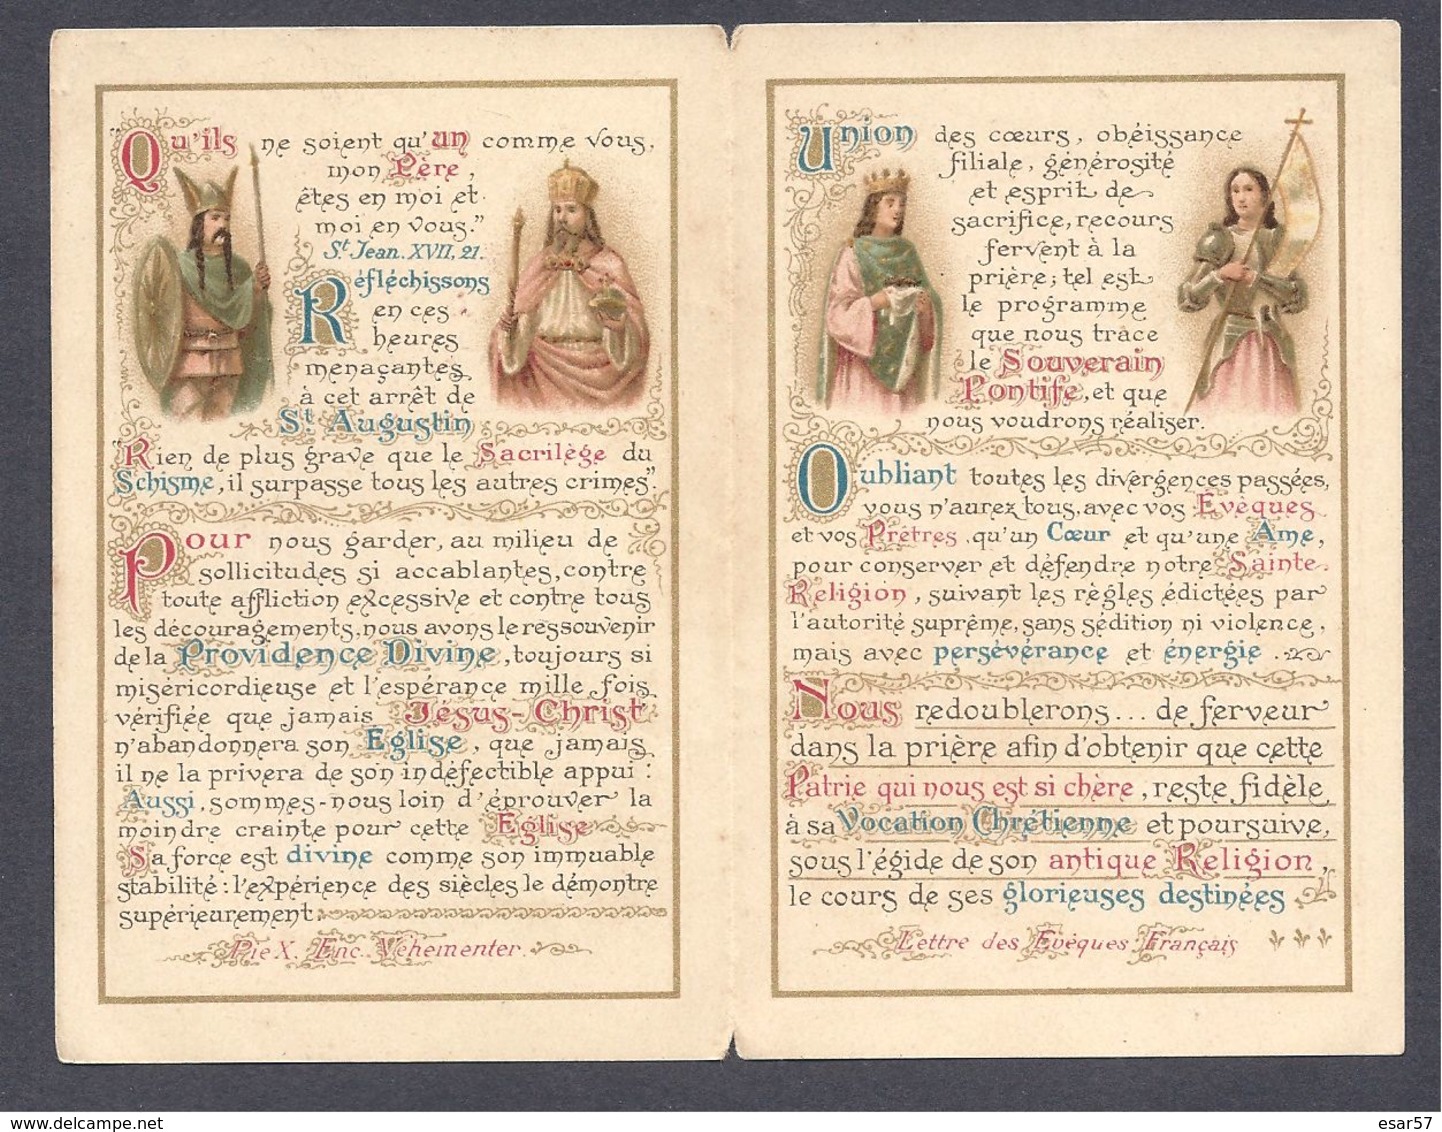 "Qu'ils ne soient qu'un comme vous,
mon Père,
êtes en moi et
moi en vous."
St Jean. XVII, 21.
Réfléchissons
en ces
heures
menaçantes
à cet arrêt de
St Augustin
"Rien de plus grave que le Sacrilège du
Schisme, il surpasse tous les autres crimes".
Pour nous garder, au milieu de
sollicitudes si accablantes, contre
toute affliction excessive et contre tous
les découragements, nous avons le ressouvenir
de la Providence Divine, toujours si
miséricordieuse et l'espérance mille fois
vérifiée que jamais Jésus-Christ
n'abandonnera son Église, que jamais
il ne la privera de son indéfectible appui :
Aussi, sommes-nous loin d'éprouver la
moindre crainte pour cette Eglise
Sa force est divine comme son immuable
stabilité : l'expérience des siècles le démontre
supérieurement
Pie X. Enc. Véhementer.
Union des cœurs, obéissance
filiale, générosité
et esprit de
sacrifice, recours
fervent à la
prière; tel est
le programme
que nous trace
le Souverain
Pontife, et que
nous voudrons réaliser.
Oubliant toutes les divergences passées,
vous n'aurez tous, avec vos Evèques
et vos Prêtres, qu'un Cœur et qu'une Ame,
pour conserver et défendre notre Sainte
Religion, suivant les règles édictées par
l'autorité suprême, sans sédition ni violence,
mais avec persévérance et énergie.
Nous redoublerons... de ferveur
dans la prière afin d'obtenir que cette
Patrie qui nous est si chère, reste fidèle
à sa Vocation Chrétienne et poursuive,
sous l'égide de son antique Religion,
le cours de ses glorieuses destinées
Lettre des Evèques Français
www.delcampe.net
esar57